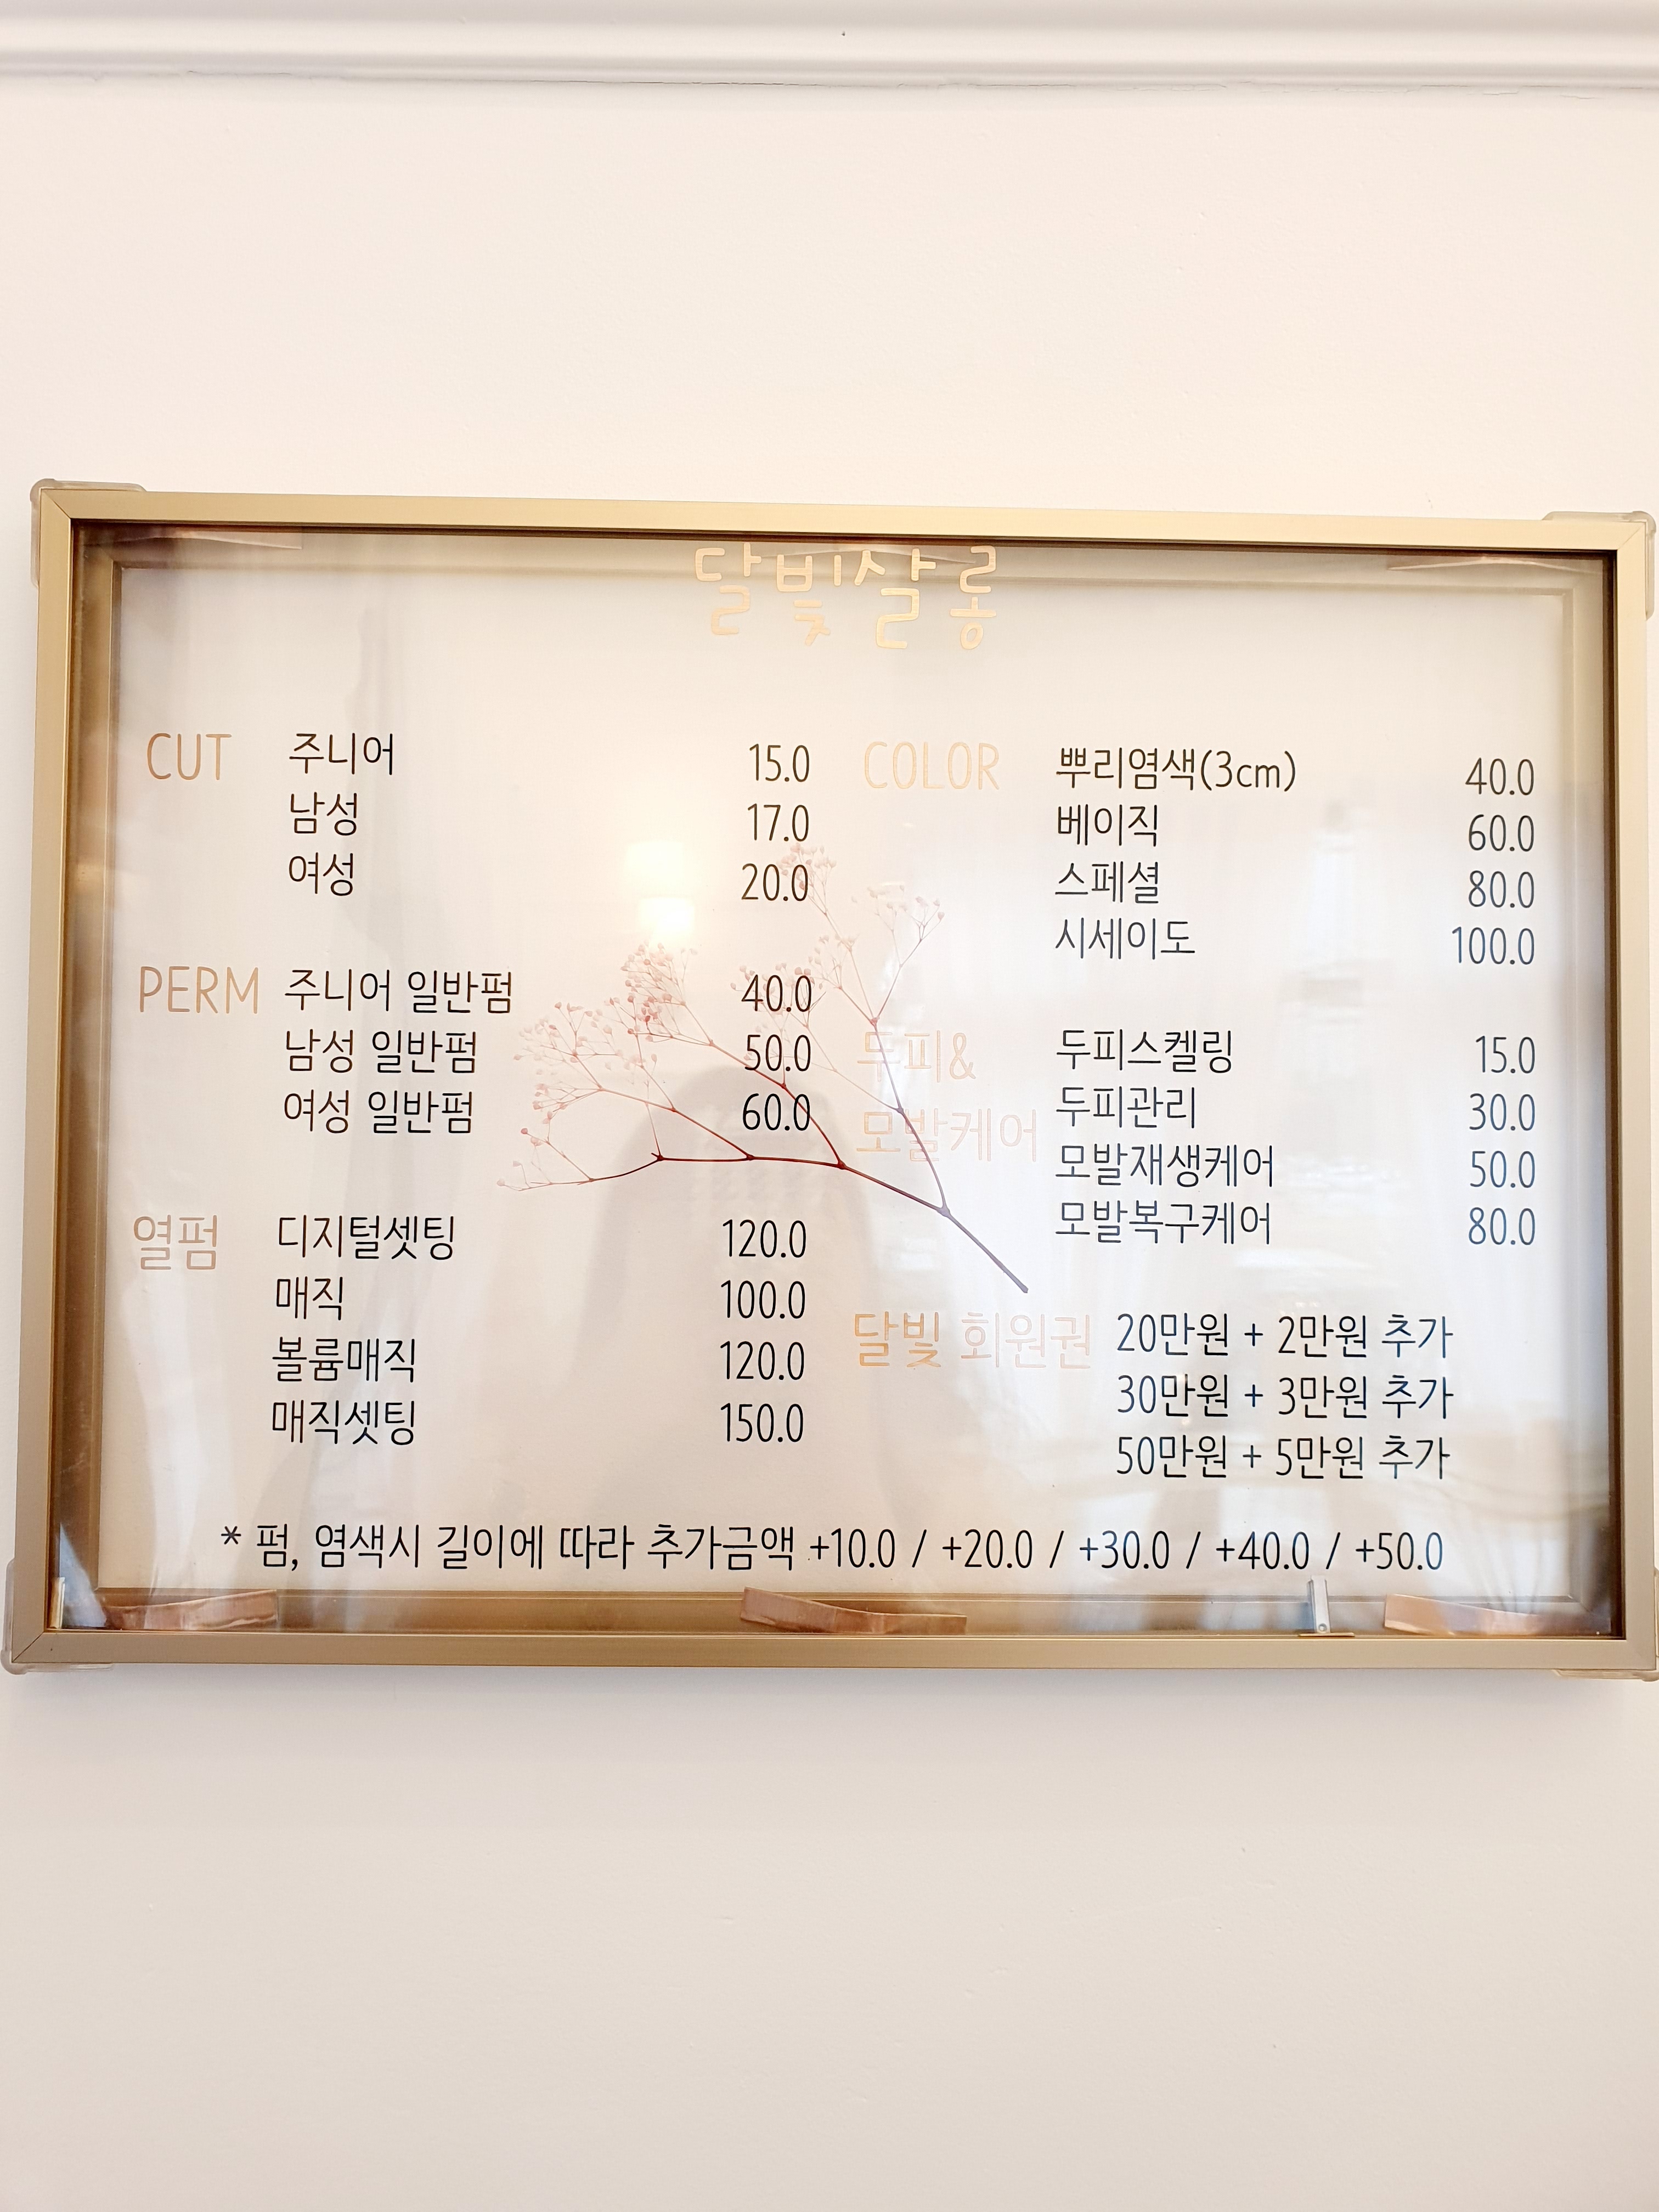 달빛살롱
CUT 주니어 15.0
남성 17.0
여성 20.0
PERM 주니어 일반펌 40.0
남성 일반펌 50.0
여성 일반펌 60.0
열펌 디지털셋팅 120.0
매직 100.0
볼륨매직 120.0
매직셋팅 150.0
COLOR 뿌리염색(3cm) 40.0
베이직 60.0
스페셜 80.0
시세이도 100.0
두피&
모발케어
두피스켈링 15.0
두피관리 30.0
모발재생케어 50.0
모발복구케어 80.0
달빛 회원권 20만원 + 2만원 추가
30만원 + 3만원 추가
50만원 + 5만원 추가
* 펌, 염색시 길이에 따라 추가금액 +10.0 / +20.0 / +30.0 / +40.0 / +50.0